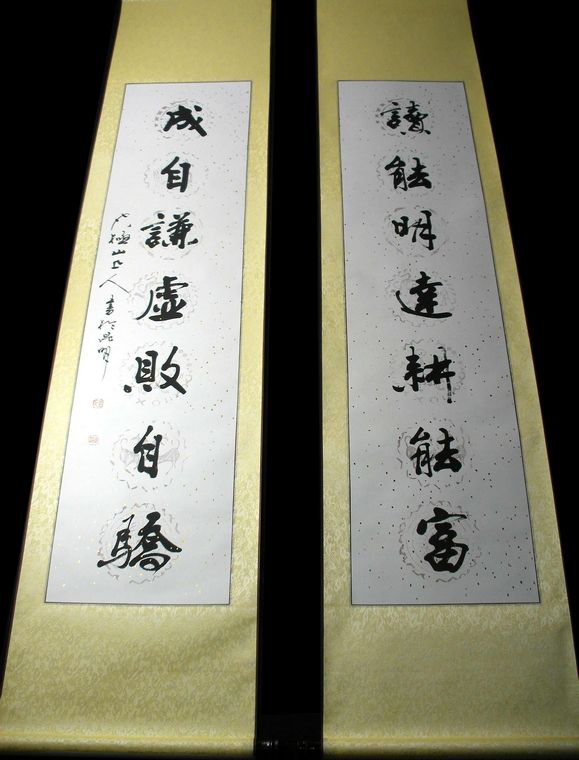 讀能明達耕能富
成自謙虛敗自驕
山人書於昆明